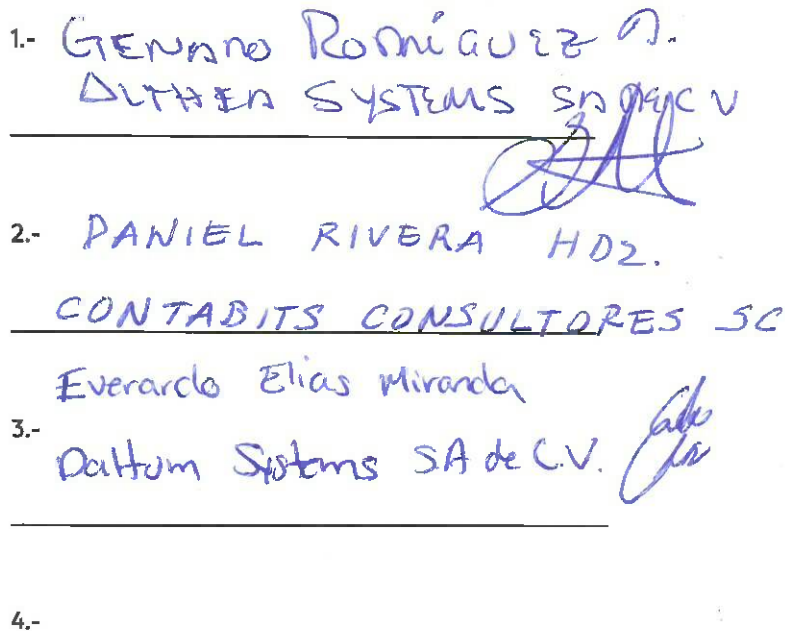 1.- GENARO RODRÍGUEZ A.
ALTHEA SYSTEMS SA DE CV
2.- DANIEL RIVERA HDZ.
CONTABITS CONSULTORES SC
Everardo Elias Miranda
3.-
Dattum Systems SA de C.V.
4.-